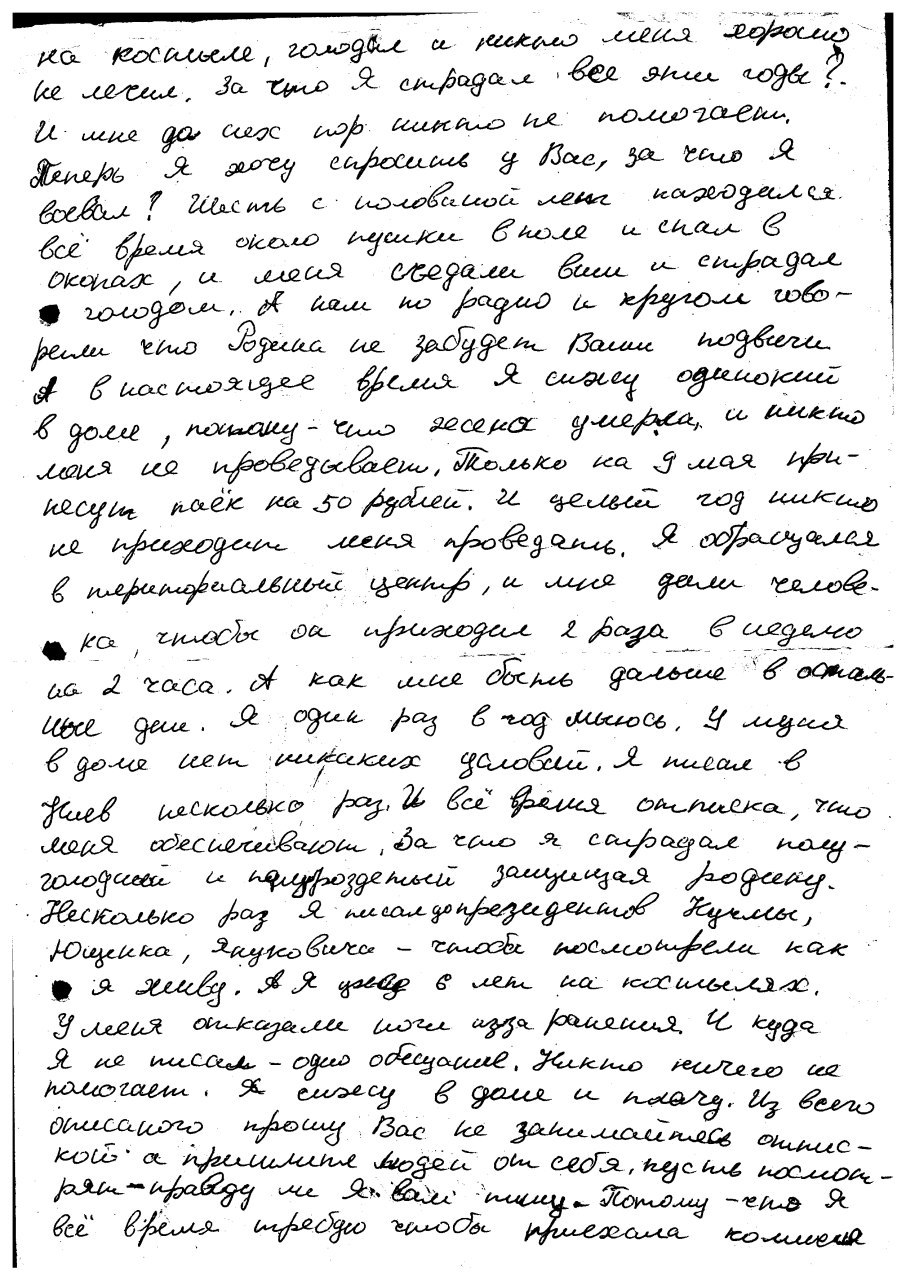 на костыле, голодал и никто меня хорошо
не лечил. За что Я страдал все эти годы?.
И мне до сех пор никто не помогает.
Теперь Я хочу спросить у Вас, за что Я
воевал? Шесть с половиной лет находился
всё время около пушки в поле и спал в
окопах, и меня съедали вши и страдал
голодом. А нам по радио и кругом гово-
рили что Родина не забудет Ваши подвиги
А в настоящее время Я сижу одинокий
в доме, потому-что жена умерла, и никто
меня не проведывает. Только на 9 мая при-
несут паёк на 50 рублей. И целый год никто
не приходит меня проведать. Я обращался
в териториальный центр, и мне дали челове-
ка, чтобы он приходил 2 раза в неделю
на 2 часа. А как мне быть дальше в осталь-
ные дни. Я один раз в год моюсь. У меня
в доме нет никаких условий. Я писал в
Киев несколько раз. И всё время отписка, что
меня обеспечивают. За что я страдал полу-
голодный и полураздетый защищая родину.
Несколько раз Я писал до президентов Кучмы,
Ющенка, Януковича – чтобы посмотрели как
я живу. А Я уже 6 лет на костылях.
У меня отказали ноги изза ранения. И куда
Я не писал – одно обещание. Никто ничего не
помогает. Я сижу в доме и плачу. Из всего
описаного прошу Вас не занимайтесь отпис-
кой а пришлите людей от себя, пусть посмот-
рят – правду ли Я вам пишу. Потому-что Я
всё время требую чтобы приехала комисия